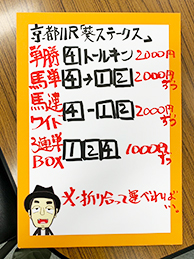 京都11R「葵ステークス」
単勝 4 トールキン 2000円
馬単 4→1 2 2000円ずつ
馬連 ワイド 4-1 2 2000円ずつ
3連単BOX 1 2 4 1000円ずつ
※折り合って運べれば…